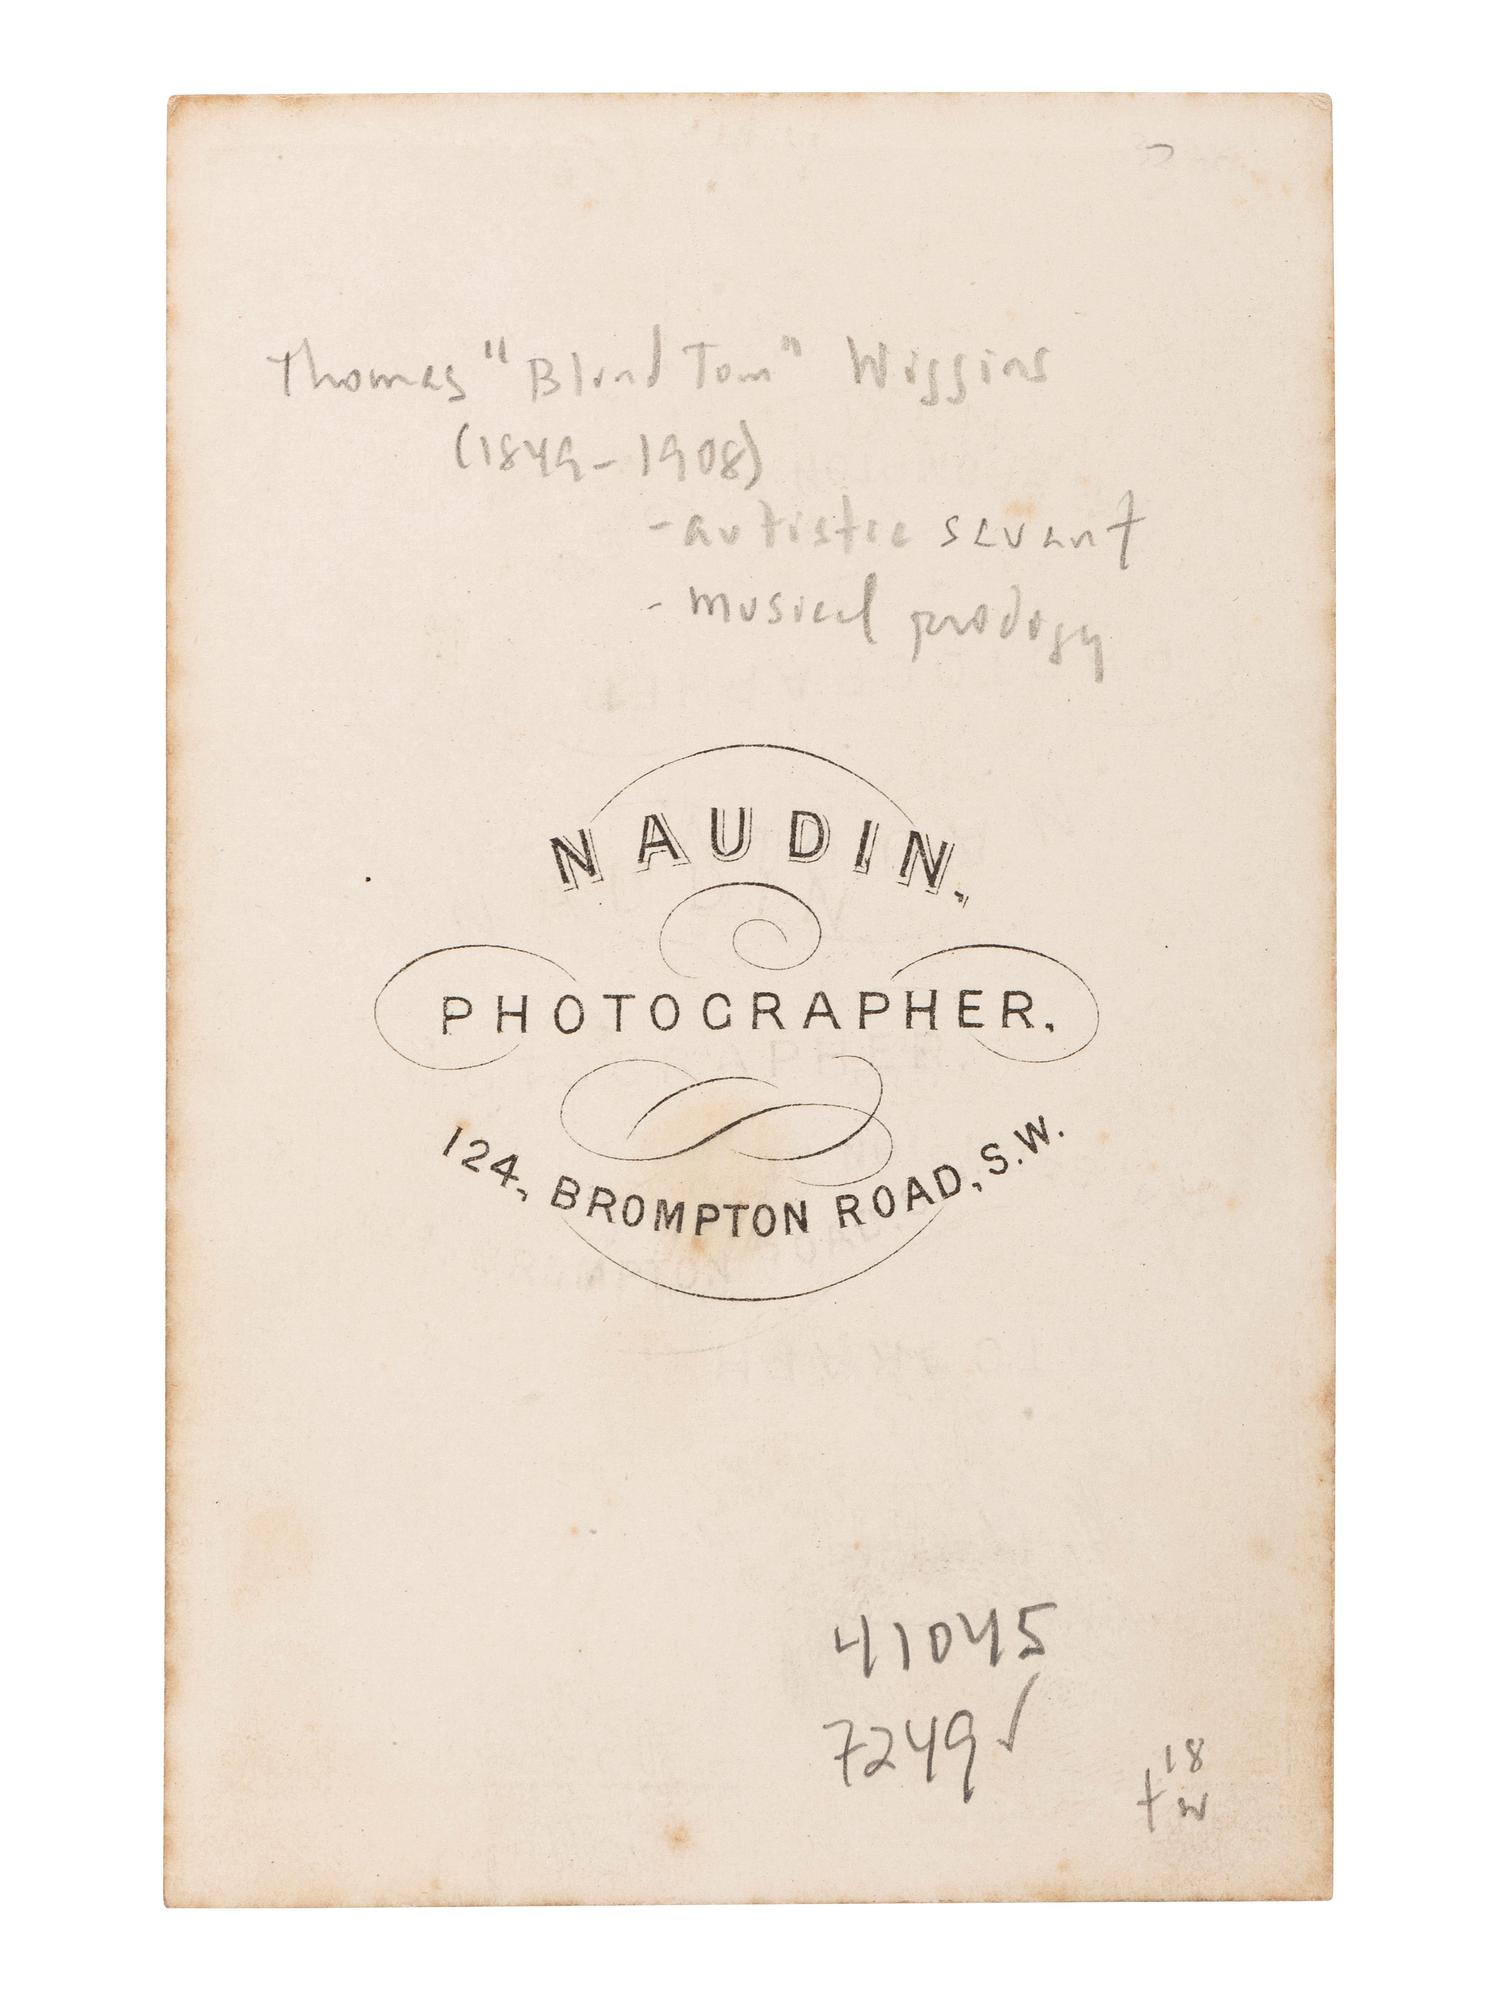 Thomas "Blind Tom" Wiggins
(1849-1908)
- autistic savant
- musical prodigy
NAUDIN,
PHOTOGRAPHER,
124, BROMPTON ROAD, S.W.
41045
7249✓
18